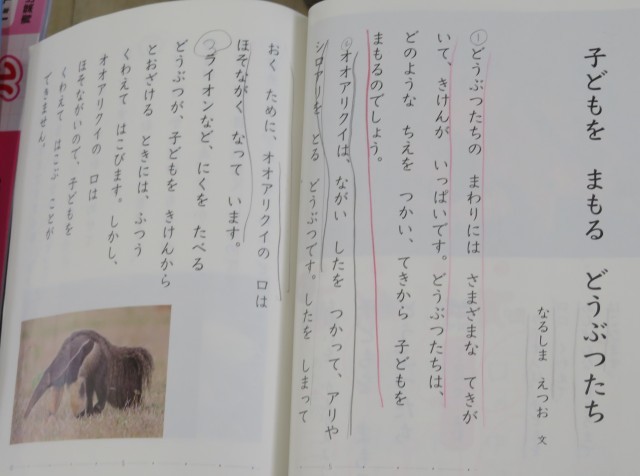 子どもを まもる どうぶつたち
なるしま えつお 文
①どうぶつたちの まわりには さまざまな てきが
いて、きけんが いっぱいです。どうぶつたちは、
どのような ちえを つかい、てきから 子どもを
まもるのでしょう。
②オオアリクイは、ながい したを つかって、アリや
シロアリを とる どうぶつです。したを しまって
おく ために、オオアリクイの 口は
ほそながく なって います。
ライオンなど、にくを たべる
どうぶつが、子どもを きけんから
とおざける ときには、ふつう
くわえて はこびます。しかし、
オオアリクイの 口は
ほそながいので、子どもを
くわえて はこぶ ことが
できません。